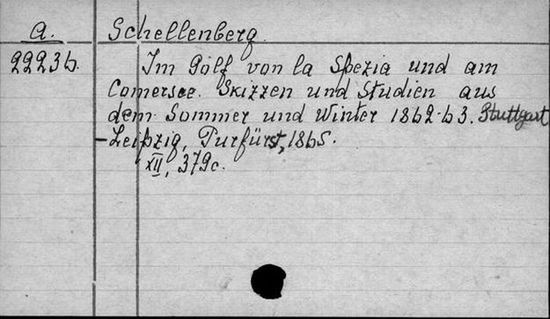 A. Schellenberg.
22236. Im Golf von la Spezia und am
Comersee. Skizzen und Studien aus
dem Sommer und Winter 1862-63. Stuttgart
-Leipzig, Purfürst, 1865.
XII, 379c.